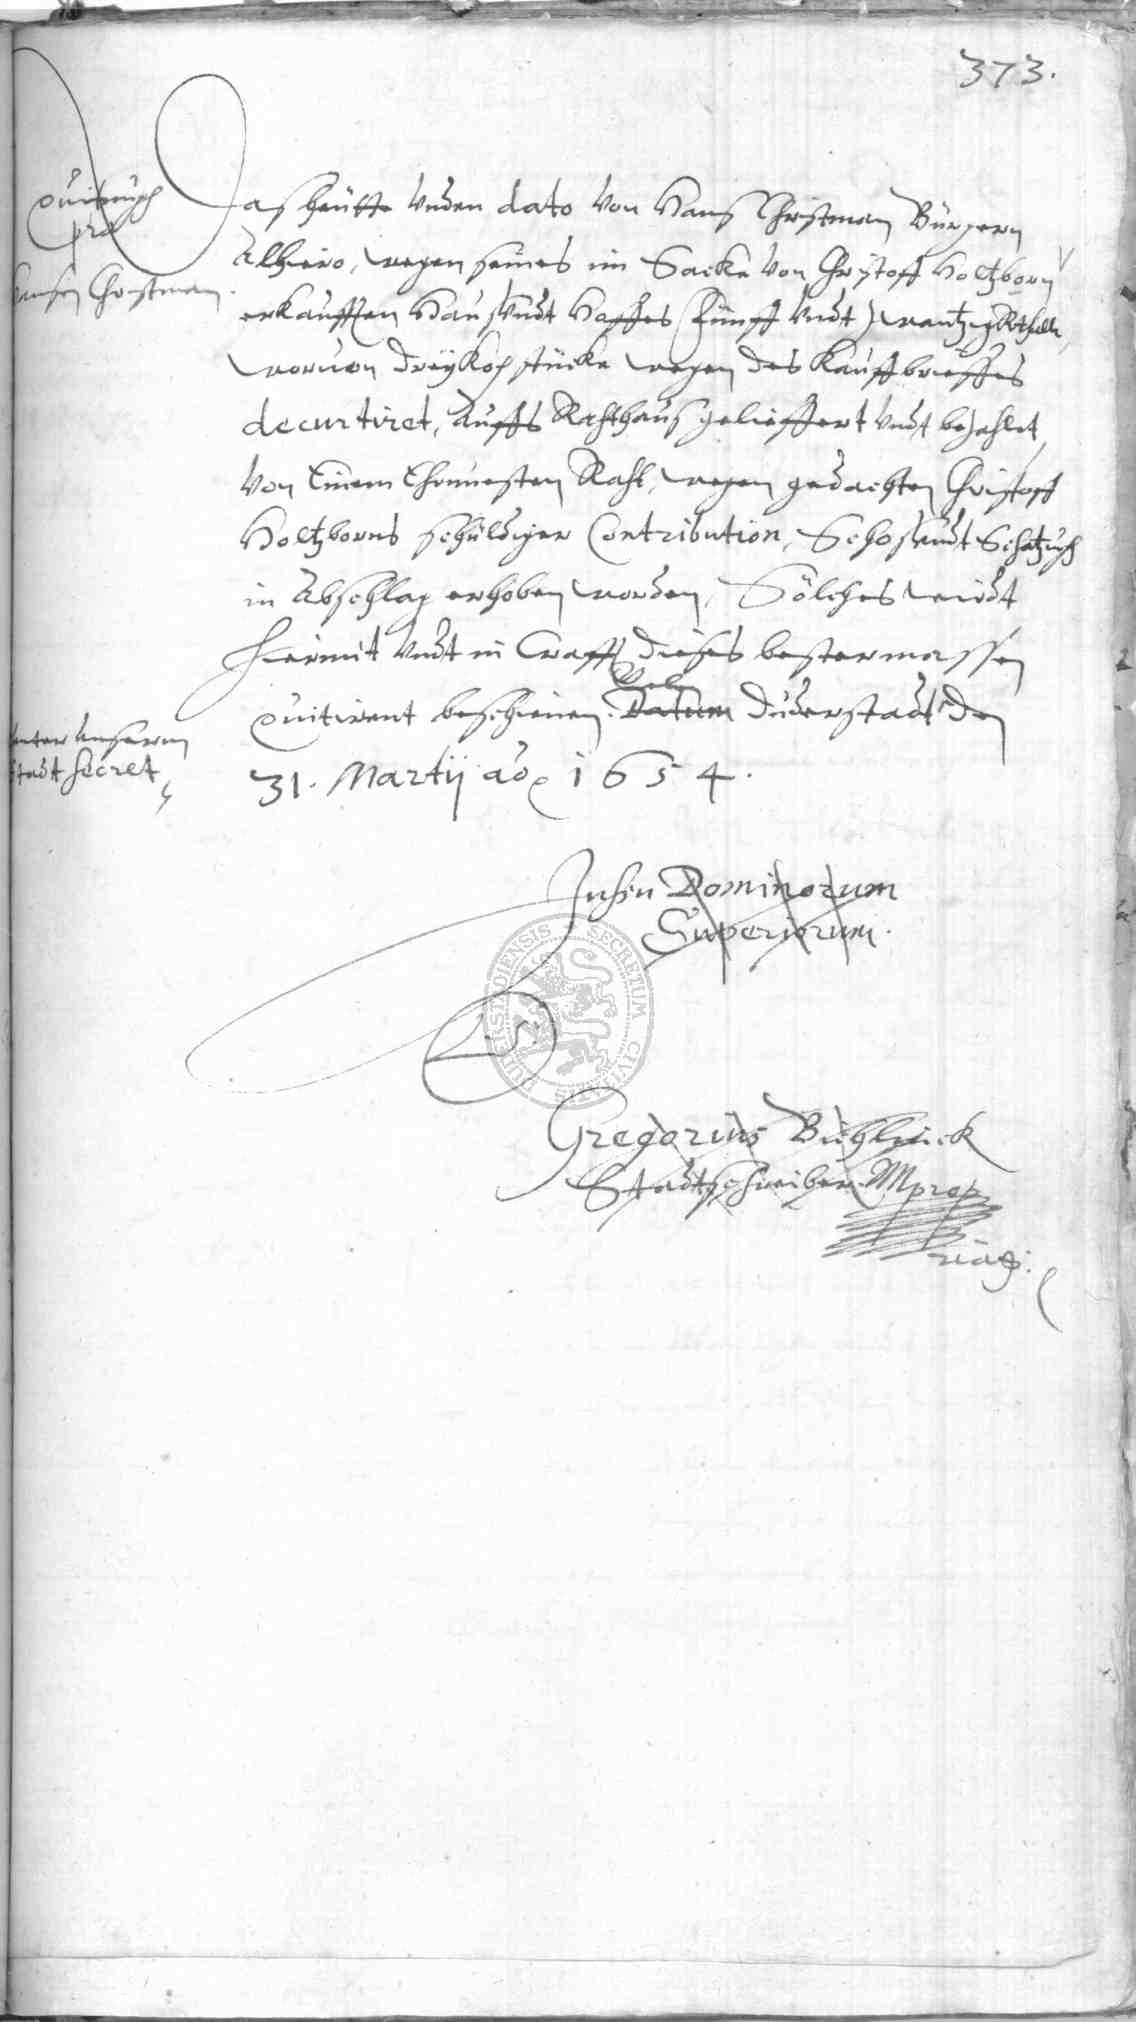 373.
Quitungh
pro
Hansen Christman.
Das heutte unden dato von Hans Christman Bürgern
Alhiero, wegen seines im Sacke von Christoff Holtzborn
erkaufften Haus undt Hoffes (Fünff undt) zwantzig Rthll.
worvon drey Kopfstücke wegen des Kauffbrieffes
decurtiret, auffs Rahthaus gelieffert undt bezahlet,
von Einem Ehrnvesten Raht, wegen gedachten Christoff
Holtzborns schuldiger Contribution, Schos undt Schatzungh
in Abschlag erhoben worden, Sölches wirdt
hiermit undt in Crafft dieses bestermassen
quitirent beschienen. Datum Duderstadt den
unter unserm
Stadt Secret
31. Martij ao 1654.
Jussu Dominorum
Superiorum.
DUDERSTADIENSIS SECRETUM CIVITATIS
Gregorius
Stadtschreiber Mprop
riah.